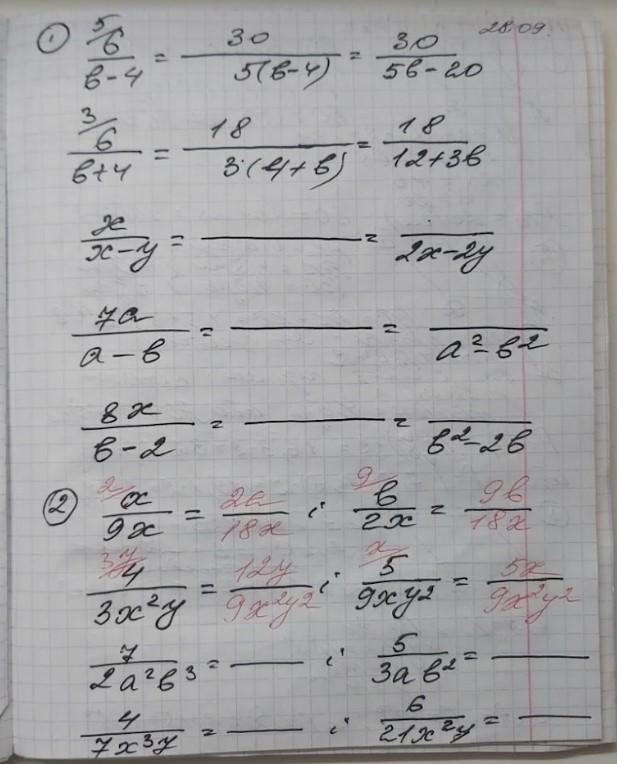 28.09.
① ⁵⁄ 6/(в-4) = 30/(5(в-4)) = 30/(5в-20)
³⁄ 6/(в+4) = 18/(3(4+в)) = 18/(12+3в)
x/(x-y) = ——— = —/(2x-2y)
7a/(a-в) = ——— = —/(a²-в²)
8x/(в-2) = ——— = —/(в²-2в)
② ²⁄ a/9x = 2a/18x ; ⁹⁄ в/2x = 9в/18x
³ʸ⁄ 4/(3x²y) = 12y/(9x²y²) ; ˣ⁄ 5/(9xy²) = 5x/(9x²y²)
7/(2a²в³) = —— ; 5/(3aв²) = ——
4/(7x³y) = —— ; 6/(21x²y) = ——